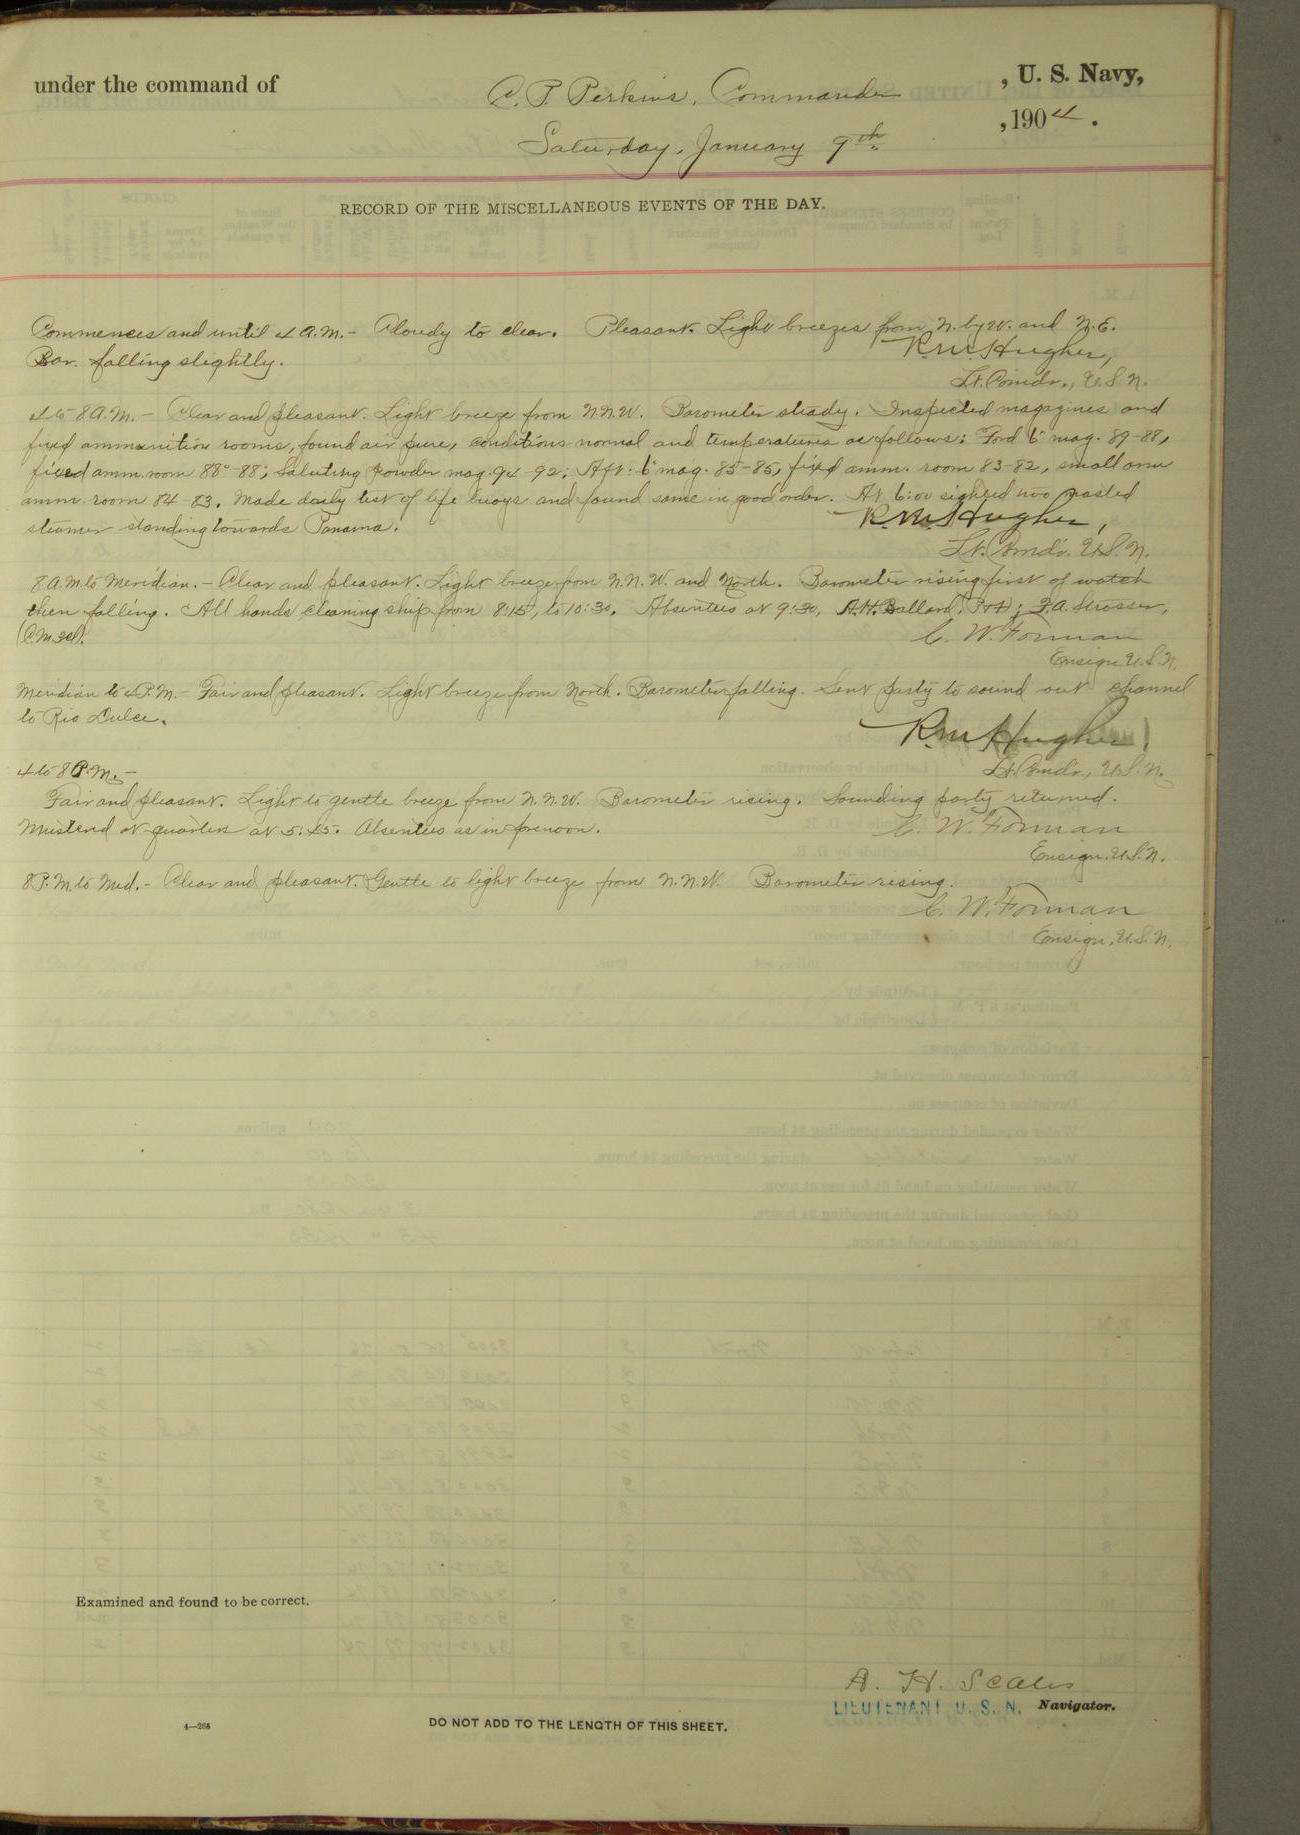 under the command of C. P. Perkins, Commander, U. S. Navy,
Saturday, January 9th, 1904.
RECORD OF THE MISCELLANEOUS EVENTS OF THE DAY.
Commences and until 4 A.M. - Cloudy to clear. Pleasant. Light breezes from N. by W. and N.E.
Bar. falling slightly.
R.M. Hughes,
Lt. Comdr., U.S.N.
4 to 8 A.M. - Clear and pleasant. Light breeze from N.N.W. Barometer steady. Inspected magazines and
fixed ammunition rooms, found air pure, conditions normal and temperatures as follows: Ford 6" mag. 89-88,
fixed amm. room 88°-88; Saluting powder mag. 94-92; Aft. 6" mag. 85-85, fixed amm. room 83-82, small arm
amm. room 84-83. Made daily test of life buoys and found same in good order. At 6:00 sighted two masted
steamer standing towards Panama.
R.M. Hughes,
Lt. Comdr. U.S.N.
8 A.M. to Meridian. - Clear and pleasant. Light breeze from N.N.W. and North. Barometer rising first of watch
then falling. All hands cleaning ship from 8:15, to 10:30. Absentees at 9:30, A.H. Ballard, F.A. Strosser,
C. W. Forman
Ensign U.S.N.
Meridian to 4 P.M. - Fair and pleasant. Light breeze from North. Barometer falling. Sent party to sound out channel
to Rio Dulce.
R.M. Hughes,
Lt. Comdr., U.S.N.
4 to 8 P.M. -
Fair and pleasant. Light to gentle breeze from N.N.W. Barometer rising. Sounding party returned.
Mustered at quarters at 5:45. Absentees as in forenoon.
C. W. Forman
Ensign, U.S.N.
8 P.M. to Mid. - Clear and pleasant. Gentle to light breeze from N.N.W. Barometer rising.
C. W. Forman
Ensign, U.S.N.
Examined and found to be correct.
A. H. Scales
LIEUTENANT U. S. N. Navigator.
4—265
DO NOT ADD TO THE LENGTH OF THIS SHEET.